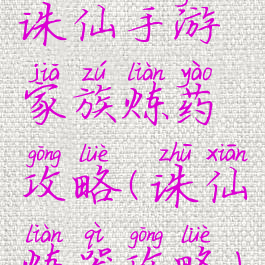 诛仙手游
jiā zú liàn yào
家族炼药
gōng lüè zhū xiān
攻略(诛仙
liàn qì gōng lüè
炼器攻略)